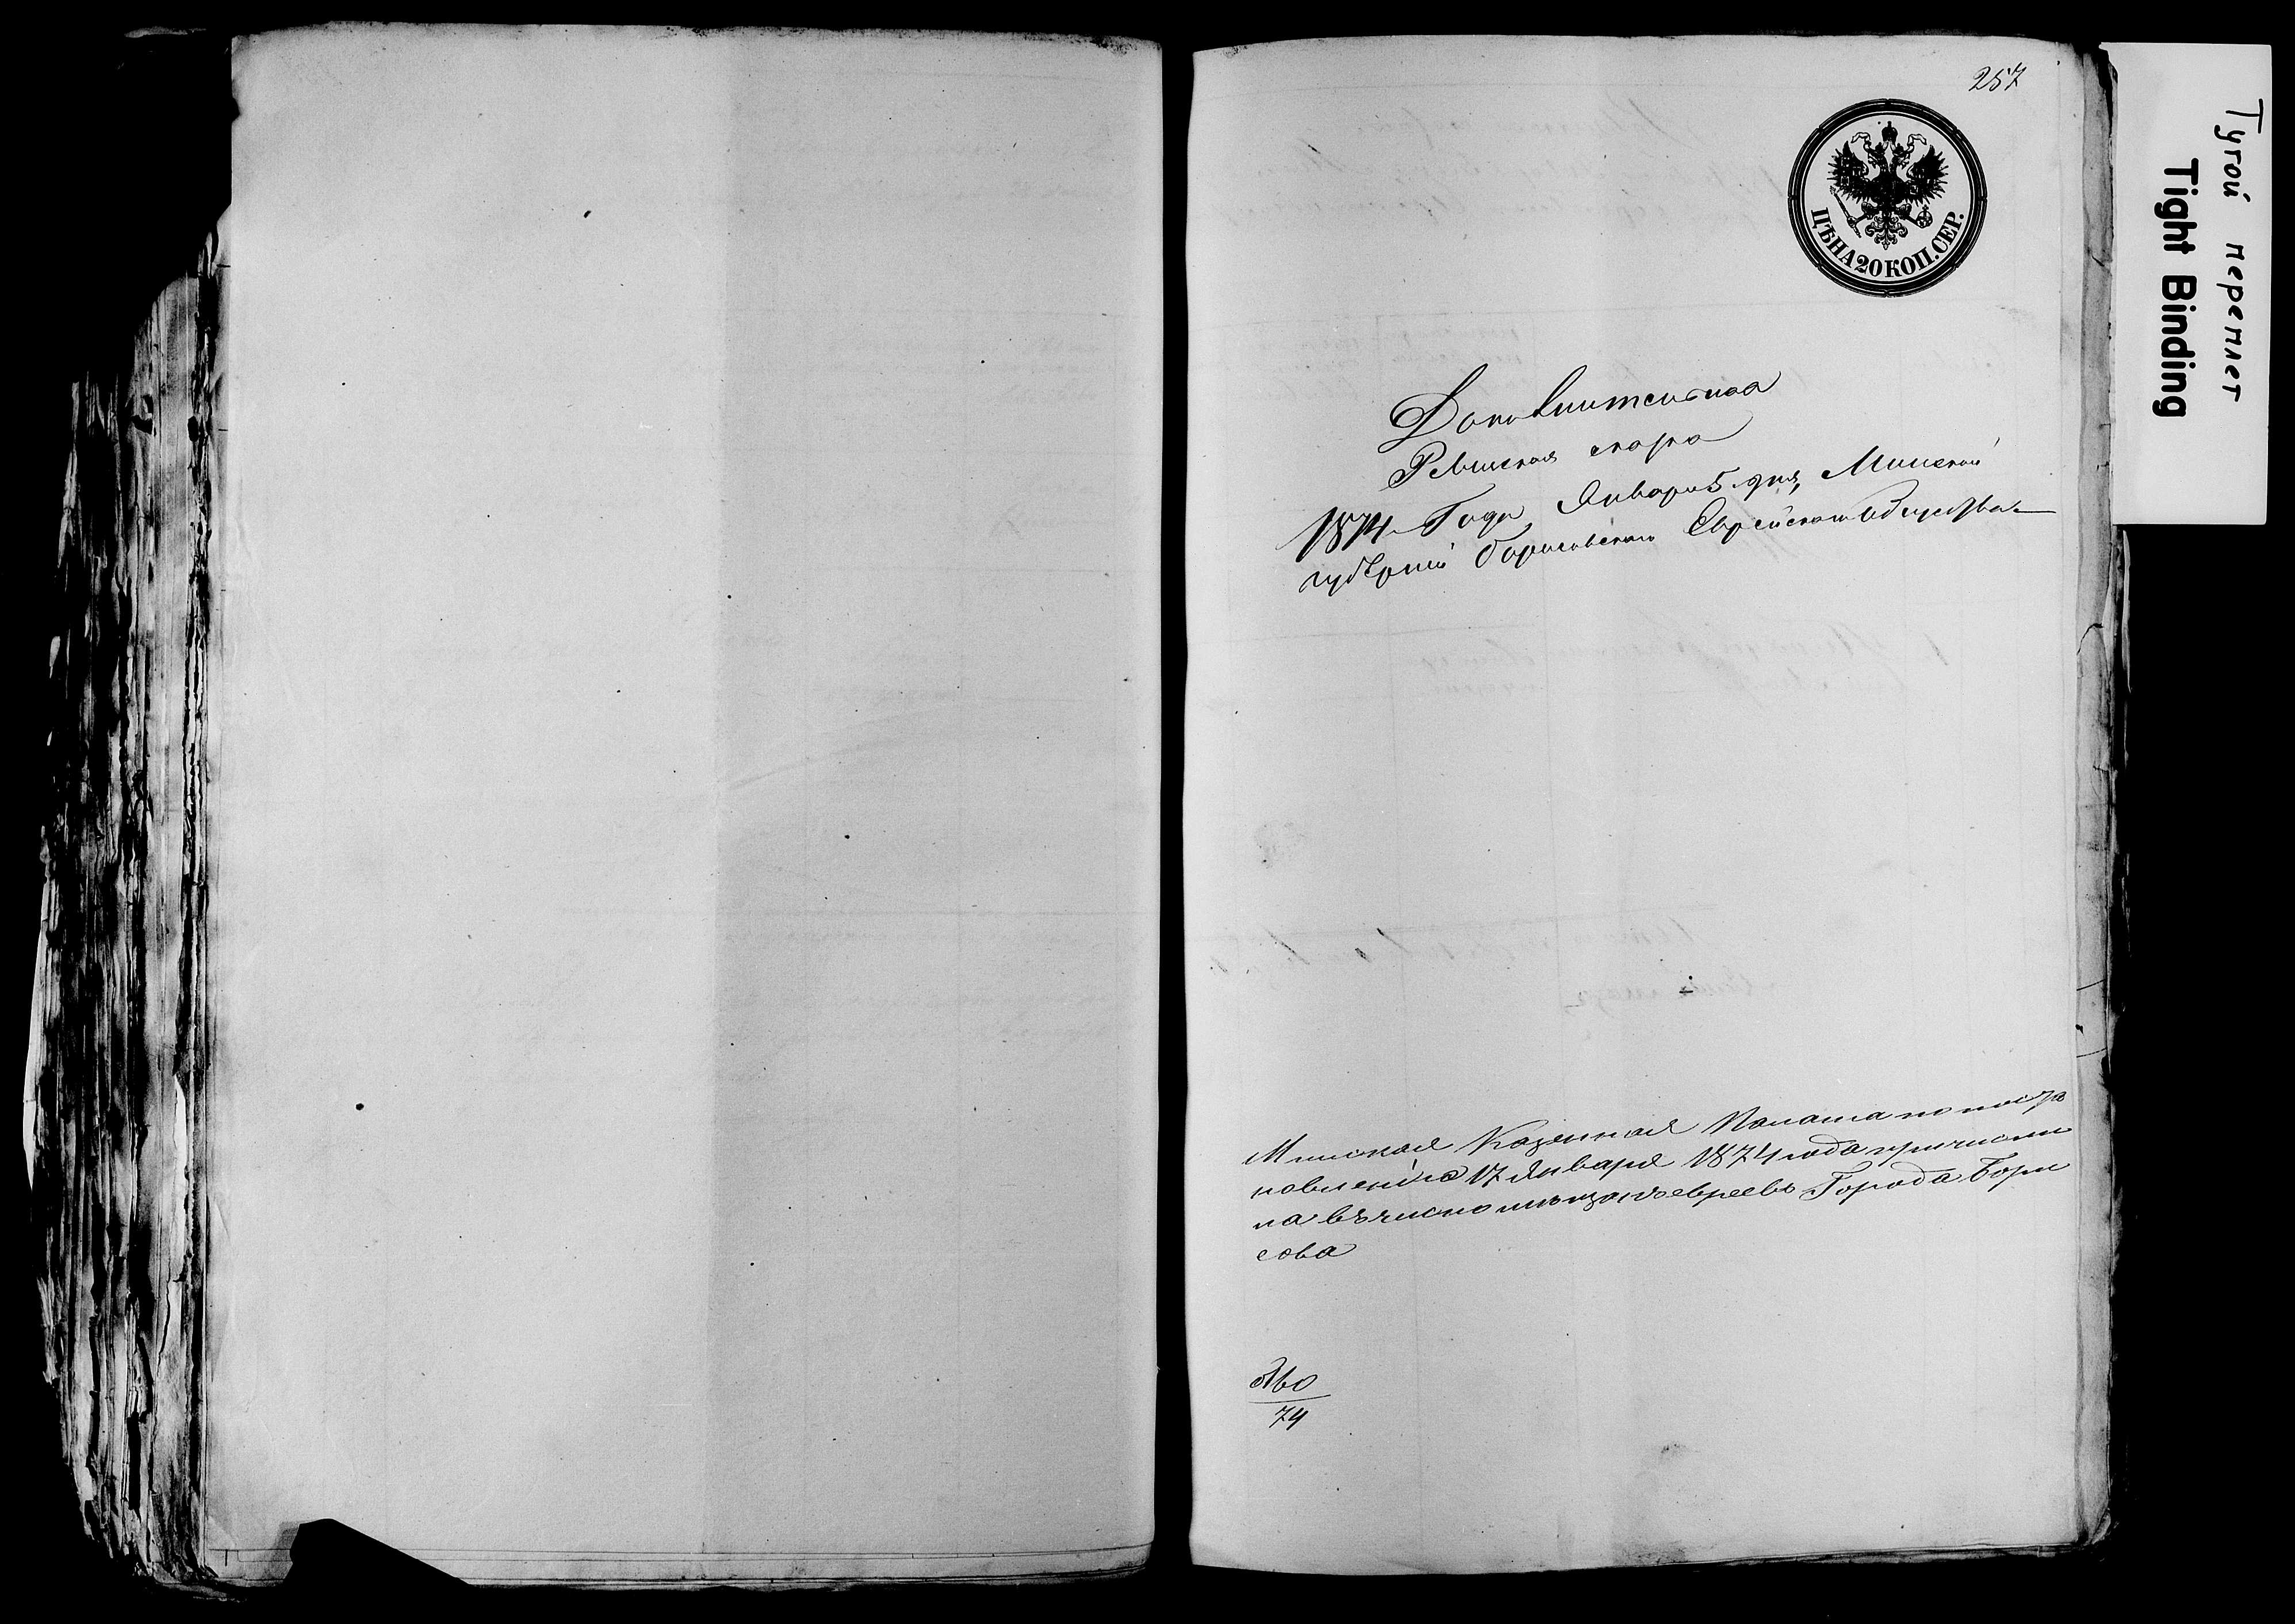 257
ЦѢНА 20 КОП. СЕР.
Дополнительная
Ревизская сказка
1874 Года, Января 5 дня, Минской
губерніи Борисовскаго Еврейскаго Общества
Минская Казенная Палата по поста
новленію 17 Января 1874 года причисли
ла въ число мѣщанъ евреевъ Города Бори
сова
74
Тугой переплет
Tight Binding